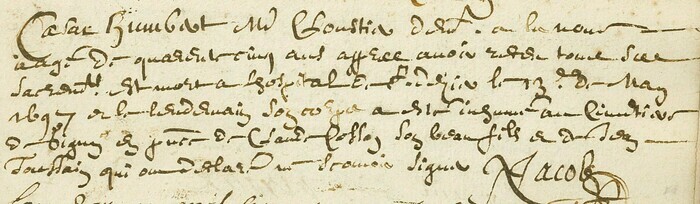 Cesar Humbert Me Cloustier demt a la neuve
aagé de quarente cinq ans apprez avoir receu tous ses
sacremts est mort a l'hospital de St diez le 13e de May
1697 et le lendemain son corps a esté inhumé au Cimetiere
de en pnce de Claude Colson son beau fils et de Jean
Toussain qui ont declaré ne scavoir signer Jacob